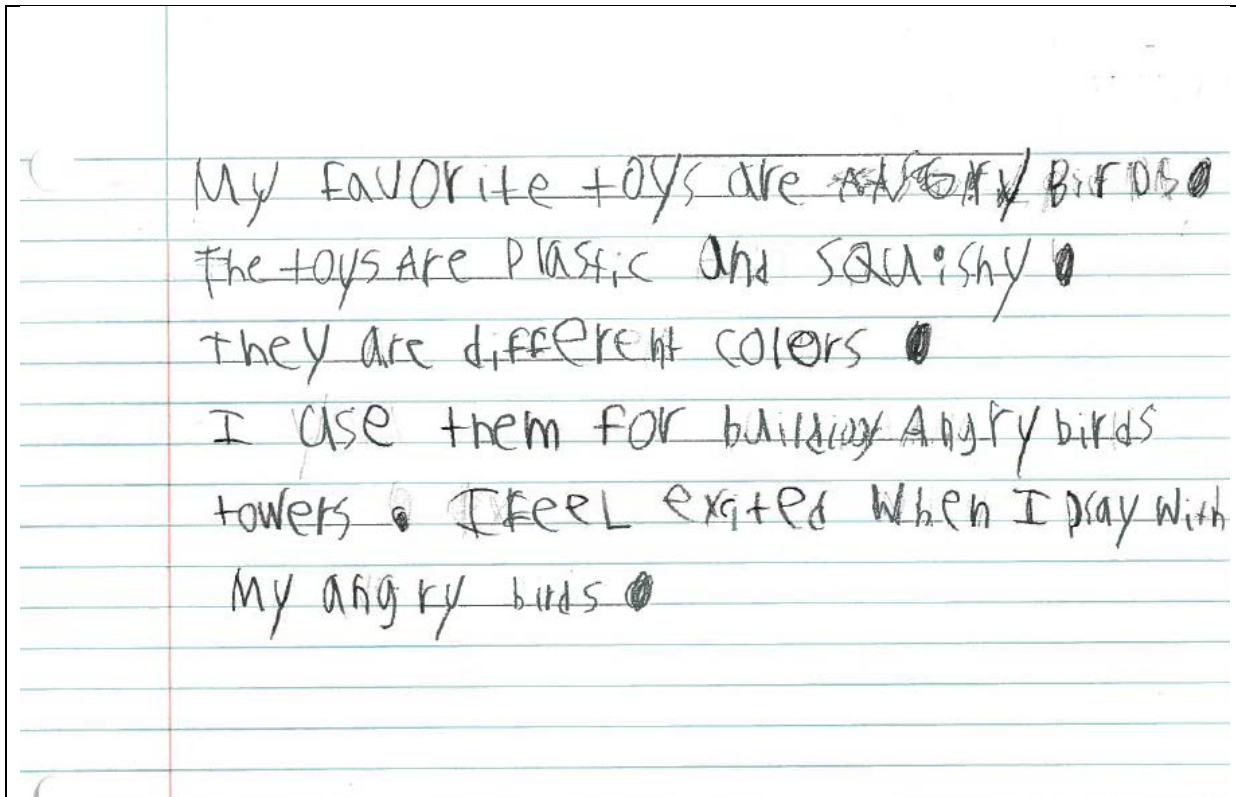 My favorite toys are ANGry BirDs.
the toys Are Plastic and SQuishy.
they are different colors.
I use them for building Angry birds
towers. I feeL exited When I play With
My angry birds.